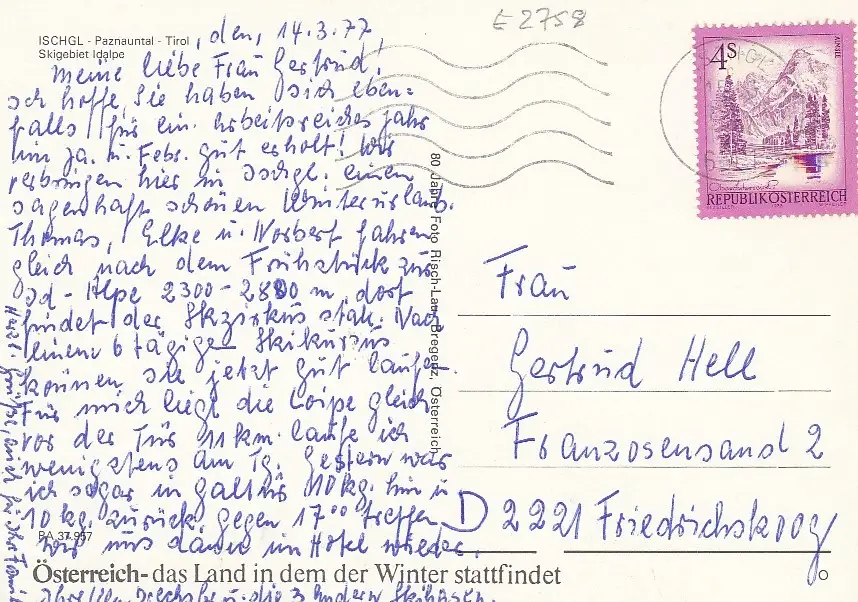 E2758
ISCHGL - Paznauntal - Tirol
Skigebiet Idalpe
, den, 14.3.77,
Meine liebe Frau Gertrud!
Ich hoffe, Sie haben sich eben=
falls für ein arbeitsreiches Jahr
im Ja. u. Febr. gut erholt! Wir
verbringen hier in Ischgl. einen
sagenhaft schönen Winterurlaub.
Thomas, Elke u. Norbert fahren
gleich nach dem Frühstück zur
Id-Alpe 2300-2800 m, dort
findet der Skizirkus statt. Nach
einem 6 tägigen Skikursus
können sie jetzt gut laufen.
Für mich liegt die Loipe gleich
vor der Tür 11km. laufe ich
wenigstens am Tg. Gestern war
ich sogar in Galtür 10kg. hin u
10 kg. zurück. Gegen 17⁰⁰ treffen
wir uns dann im Hotel wieder.
Herzl. Grüße, auch für Ihre
u. die 3 anderen Skihasen.
PA 37957
80 Jahre Foto Risch-Lau, Bregenz, Österreich
4S
REPUBLIK ÖSTERREICH
Frau
Gertrud Hell
Franzosensand 2
D 2221 Friedrichskoog
Österreich- das Land in dem der Winter stattfindet